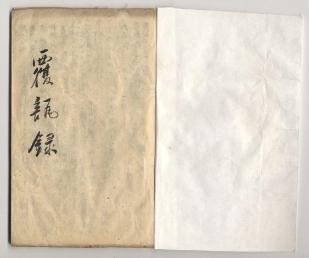 覆瓿録